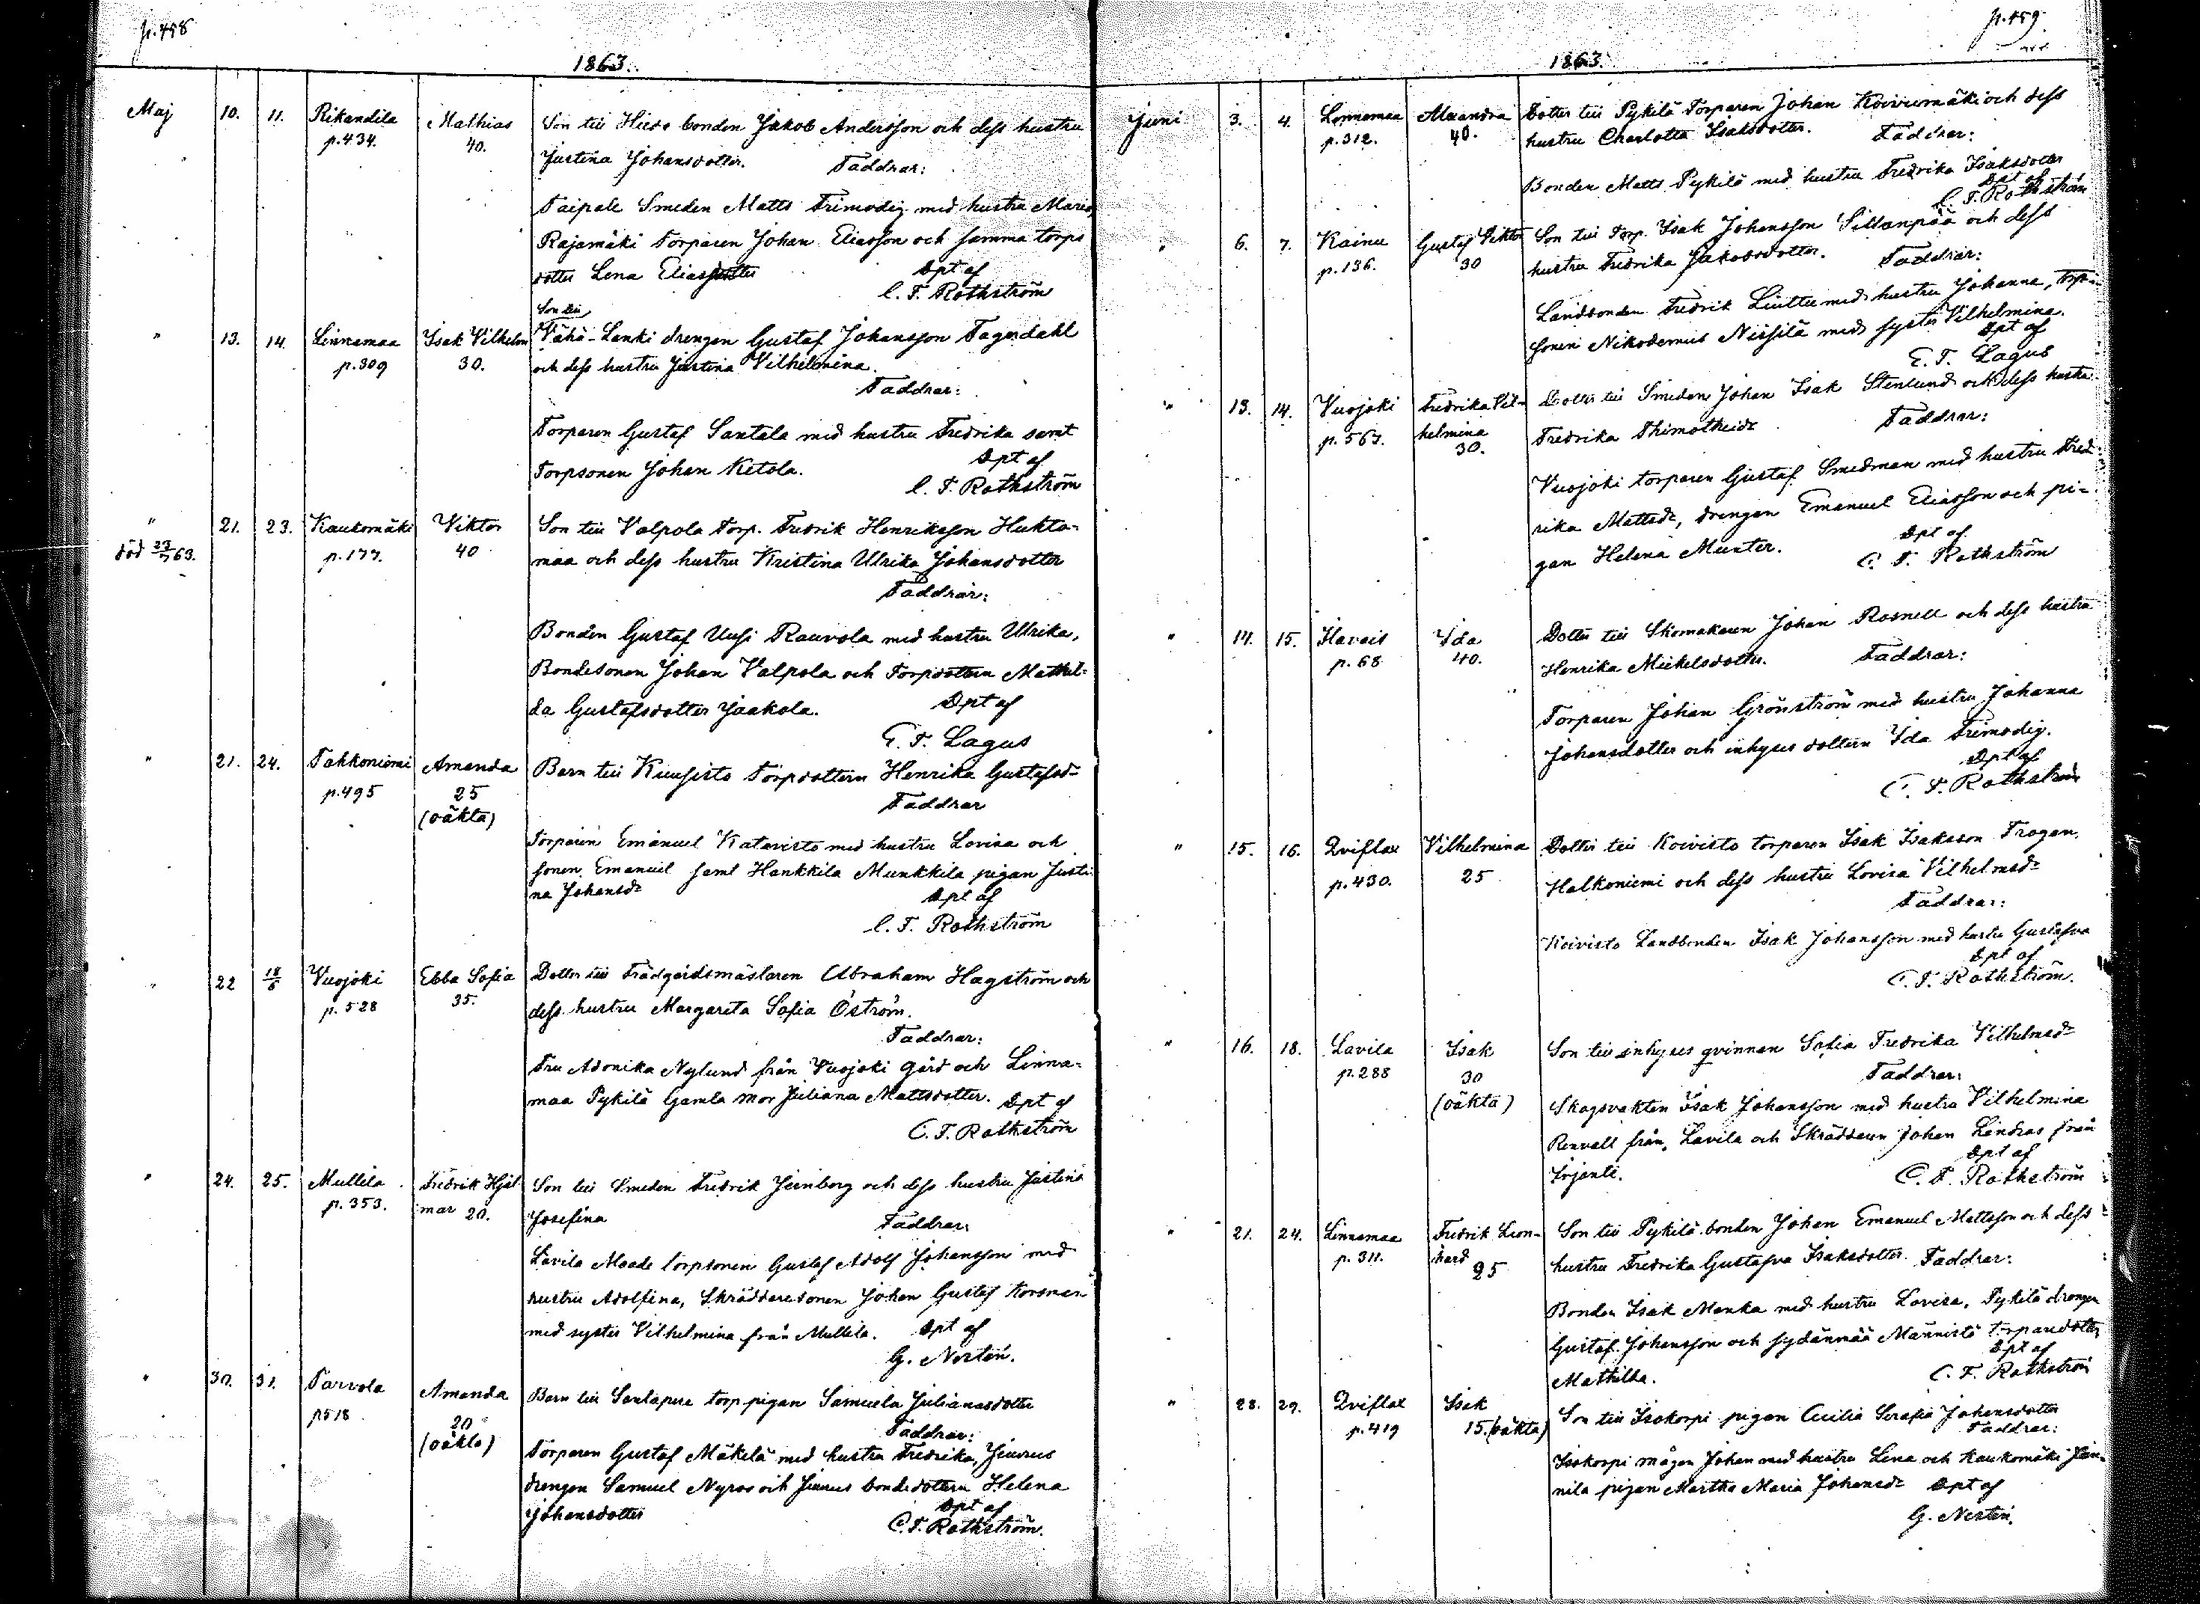 p. 458
1863.
Maj 10. 11. Rikandila Mathias Son till Hiedo bonden Jakob Andersson och dess hustru
p. 434. 40. Justina Johansdotter. Faddrar:
Taipale Smeden Matts Frimodig med hustru Maria
Rajamäki Torparen Johan Eliasson och samma torps
dotter Lena Eliasdotter Dpt af
C. F. Rothström
Son till
" 13. 14. Linnamaa Isak Vilhelm Vähä-Lanki drengen Gustaf Johansson Fagerdahl
p. 309 30. och dess hustru Justina Vilhelmina.
Faddrar:
Torparen Gustaf Santala med hustru Fredrika samt
Torpsonen Johan Ketola. Dpt af
C. F. Rothström
" 21. 23. Kaukomäki Viktor Son till Valpola Torp. Fredrik Henriksson Huhta-
död 23/7 63. p. 177. 40 maa och dess hustru Kristina Ulrika Johansdotter
Faddrar:
Bonden Gustaf Uusi Rauvola med hustru Ulrika,
Bondesonen Johan Valpola och Torpdottern Mathil-
da Gustafsdotter Jaakola. Dpt af
E. F. Lagus
" 21. 24. Pahkoniemi Amanda Barn till Kuusisto Torpdottern Henrika Gustafsd:r
p. 495 25 Faddrar
(oäkta)
Torparen Emanuel Katavisto med hustru Lovisa och
sonen Emanuel saml Hankkila Munkkila pigan Justi-
na Johansd:r Dpt af
C. F. Rothström
" 22 18/6 Vuojoki Ebba Sofia Dotter till Trädgårdsmästaren Abraham Hagström och
p. 528 35. dess hustru Margareta Sofia Öström.
Faddrar:
Fru Adonika Nylund från Vuojoki gård och Linna-
maa Pykilä Gamla mor Juliana Mattsdotter. Dpt af
C. F. Rothström
" 24. 25. Mullila Fredrik Hjal Son till Smeden Fredrik Jernberg och dess hustru Justina
p. 353. mar 20. Josefina Faddrar:
Lavila Maade torpsonen Gustaf Adolf Johansson med
hustru Adolfina, Skräddaresonen Johan Gustaf Korsman
med syster Vilhelmina från Mullila. Dpt af
G. Nortén.
" 30. 31. Tarvola Amanda Barn till Santapere torp pigan Samuela Julianasdotter
p 518 20 Faddrar:
(oäkta) Torparen Gustaf Mäkelä med hustru Fredrika, Jiurus
drengen Samuel Nyroo och Jiurus bondedottern Helena
Johansdotter Dpt af
C. F. Rothström.
p. 459
1863.
Juni 3. 4. Linnamaa Alexandra Dotter till Pykilä Torparen Johan Koivumäki och dess
p. 312. 40. hustru Charlotta Isaksdotter. Faddrar:
Bonden Matts Pykilä med hustru Fredrika Isaksdotter
Dpt af
C. F. Rothström
" 6. 7. Kainu Gustaf Viktor Son till Torp. Isak Johansson Sillanpää och dess
p. 136. 30 hustru Fredrika Jakobsdotter. Faddrar:
Landbonden Fredrik Liuttu med hustru Johanna, torp-
sonen Nikodemus Nissilä med syster Vilhelmina.
Dpt af
E. F. Lagus
" 13. 14. Vuojoki Fredrika Vil- Dotter till Smeden Johan Isak Stenlund och dess hustru
p. 567. helmina Fredrika Thimotheid:r Faddrar:
30.
Vuojoki torparen Gustaf Smedman med hustru Fred-
rika Mattsd:r, drengen Emanuel Eliasson och pi-
gan Helena Munter. Dpt af
C. F. Rothström
" 14. 15. Ilavais Ida Dotter till Skomakaren Johan Rosnell och dess hustru
p. 68 40. Henrika Mickelsdotter. Faddrar:
Torparen Johan Grönström med hustru Johanna
Johansdotter och inhyses dottern Ida Frimodig.
Dpt af
C. F. Rothström
" 15. 16. Qviflax Vilhelmina Dotter till Koivisto torparen Isak Isaksson Trogen,
p. 430. 25 Halkoniemi och dess hustru Lovisa Vilhelmsd:r
Faddrar:
Koivisto Landbonden Isak Johansson med hustru Gustafva
Dpt af
C. F. Rothström.
" 16. 18. Lavila Isak Son till inhyses qvinnan Sofia Fredrika Vilhelmsd:r
p. 288 30 Faddrar:
(oäkta) Skogsvakten Isak Johansson med hustru Vilhelmina
Renvall från Lavila och Skräddaren Johan Lindros från
Dpt af
Irjante. C. F. Rothström
" 21. 24. Linnamaa Fredrik Leon- Son till Pykilä bonden Johan Emanuel Mattsson och dess
p. 311. hard 25 hustru Fredrika Gustafva Isaksdotter. Faddrar:
Bonden Isak Manka med hustru Lovisa, Pykilä drengen
Gustaf Johansson och Sydänmää Männistö torparedotter
Dpt af
Mathilda. C. F. Rothström
" 28. 29. Qviflax Isak Son till Isokorpi pigan Cecilia Serafia Johansdotter
p. 419 15. (oäkta) Faddrar:
Isokorpi mågen Johan med hustru Lena och Kaukomäki Jun-
nila pigan Martha Maria Johansd:r Dpt af
G. Nortén.